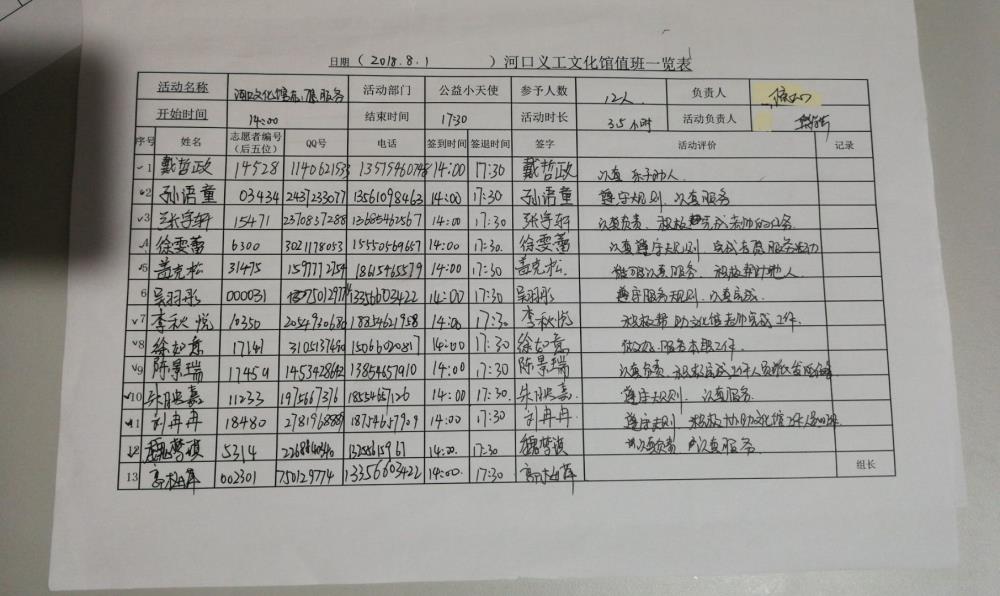 日期（2018.8.1）河口义工文化馆值班一览表
活动名称 河口文化馆志愿服务 活动部门 公益小天使 参予人数 12人 负责人
开始时间 14:00 结束时间 17:30 活动时长 3.5小时 活动负责人
序号 姓名 志愿者编号（后五位） QQ号 电话 签到时间 签退时间 签字 活动评价 记录
1 戴哲政 14528 1140621533 13575460748 14:00 17:30 戴哲政 认真 乐于助人
2 孙语童 03434 2437233077 13561098463 14:00 17:30 孙语童 遵守规则、认真服务
3 张字轩 15471 2370837288 13685462567 14:00 17:30 张字轩 认真负责、积极完成老师的任务
4 徐雯蕾 6300 3021178053 15550569667 14:00 17:30. 徐雯蕾 认真遵守规则 完成志愿服务活动
5 盖克松 31475 1597772754 18615465579 14:00 17:30 盖克松. 认真服务、积极帮助他人
6 吴羽彤 000031 13356603422 14:00 17:30 吴羽彤 遵守服务规则、认真完成.
7 李秋悦 10350 2054930680 18854621958 14:00 17:30 李秋悦 积极帮助文化馆老师完成工作.
8 徐如意 17141 3105137490 15066020817 14:00 17:30 徐如意 服务本职工作.
9 陈景瑞 17459 1453428642 13854657910 14:00 17:30 陈景瑞 认真负责、积极完成工作人员
10 11233 1975667376 18554657126 14:00 17:30. 遵守规则、认真服务.
11 刘冉冉 18480 2781968889 18754657909 14:00 17:30 刘冉冉 遵守规则 积极协助文化馆
12 魏梦琪 5314 13255615961 14:00. 17:30 魏梦琪 认真负责 认真服务.
13 002301 750129774 13356603422 14:00. 17:30 组长